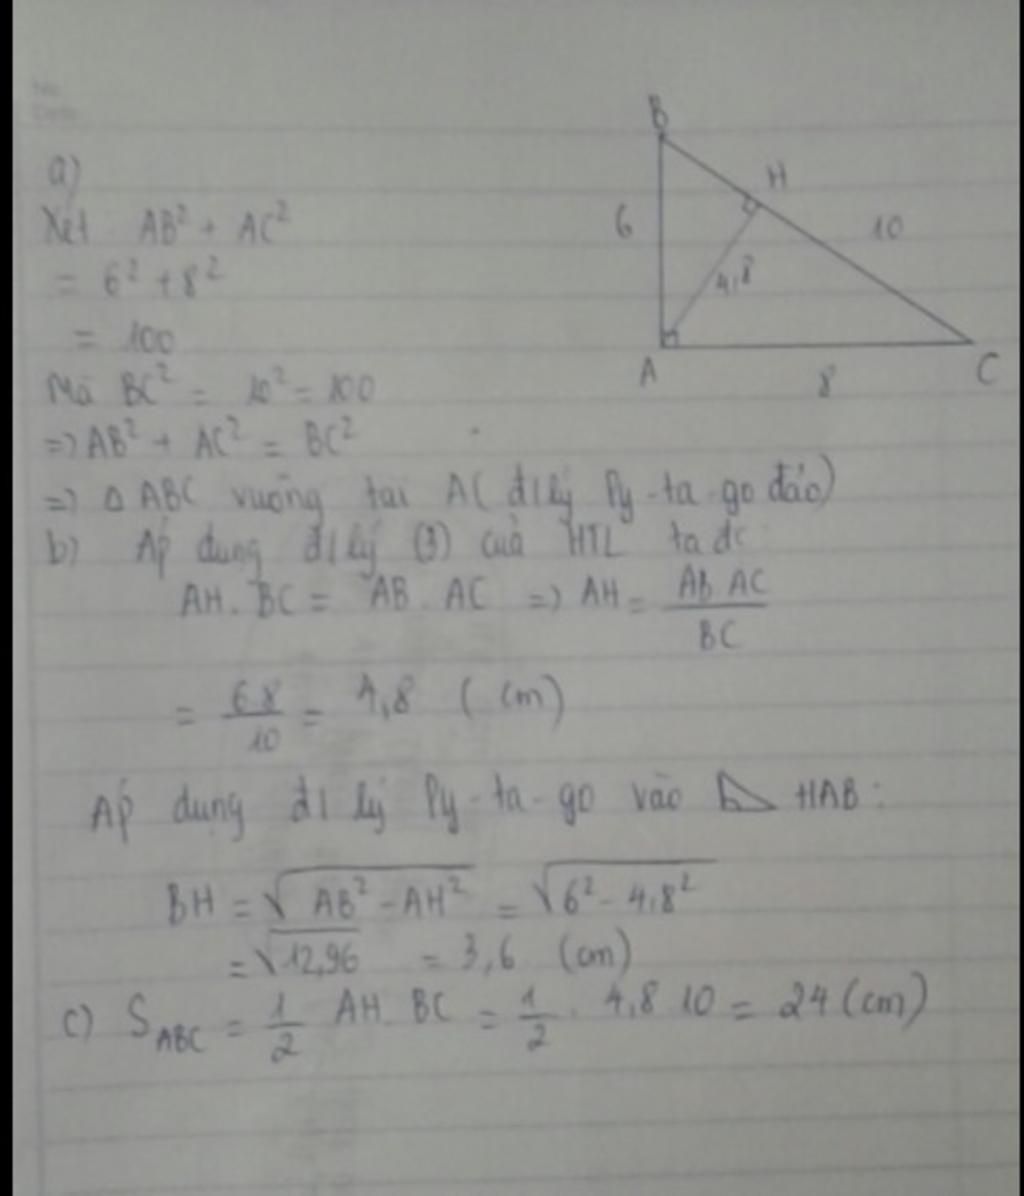 a)
B
H
Xét AB² + AC²
6
10
= 6² + 8²
4,8
= 100
A
8
C
Mà BC² = 10² = 100
=> AB² + AC² = BC²
=> Δ ABC vuông tại A ( đ/lý Py-ta-go đảo)
b) Áp dụng đ/lý (3) của HTL ta đc
AH. BC = AB . AC => AH = \frac{AB AC}{BC}
= \frac{6 8}{10} = 4,8 (cm)
Áp dụng đ/lý Py-ta-go vào ⊿ HAB :
BH = √(AB² - AH²) = √(6² - 4,8²)
= √12,96 = 3,6 (cm)
c) S_{ABC} = \frac{1}{2} AH. BC = \frac{1}{2} . 4,8 10 = 24 (cm)